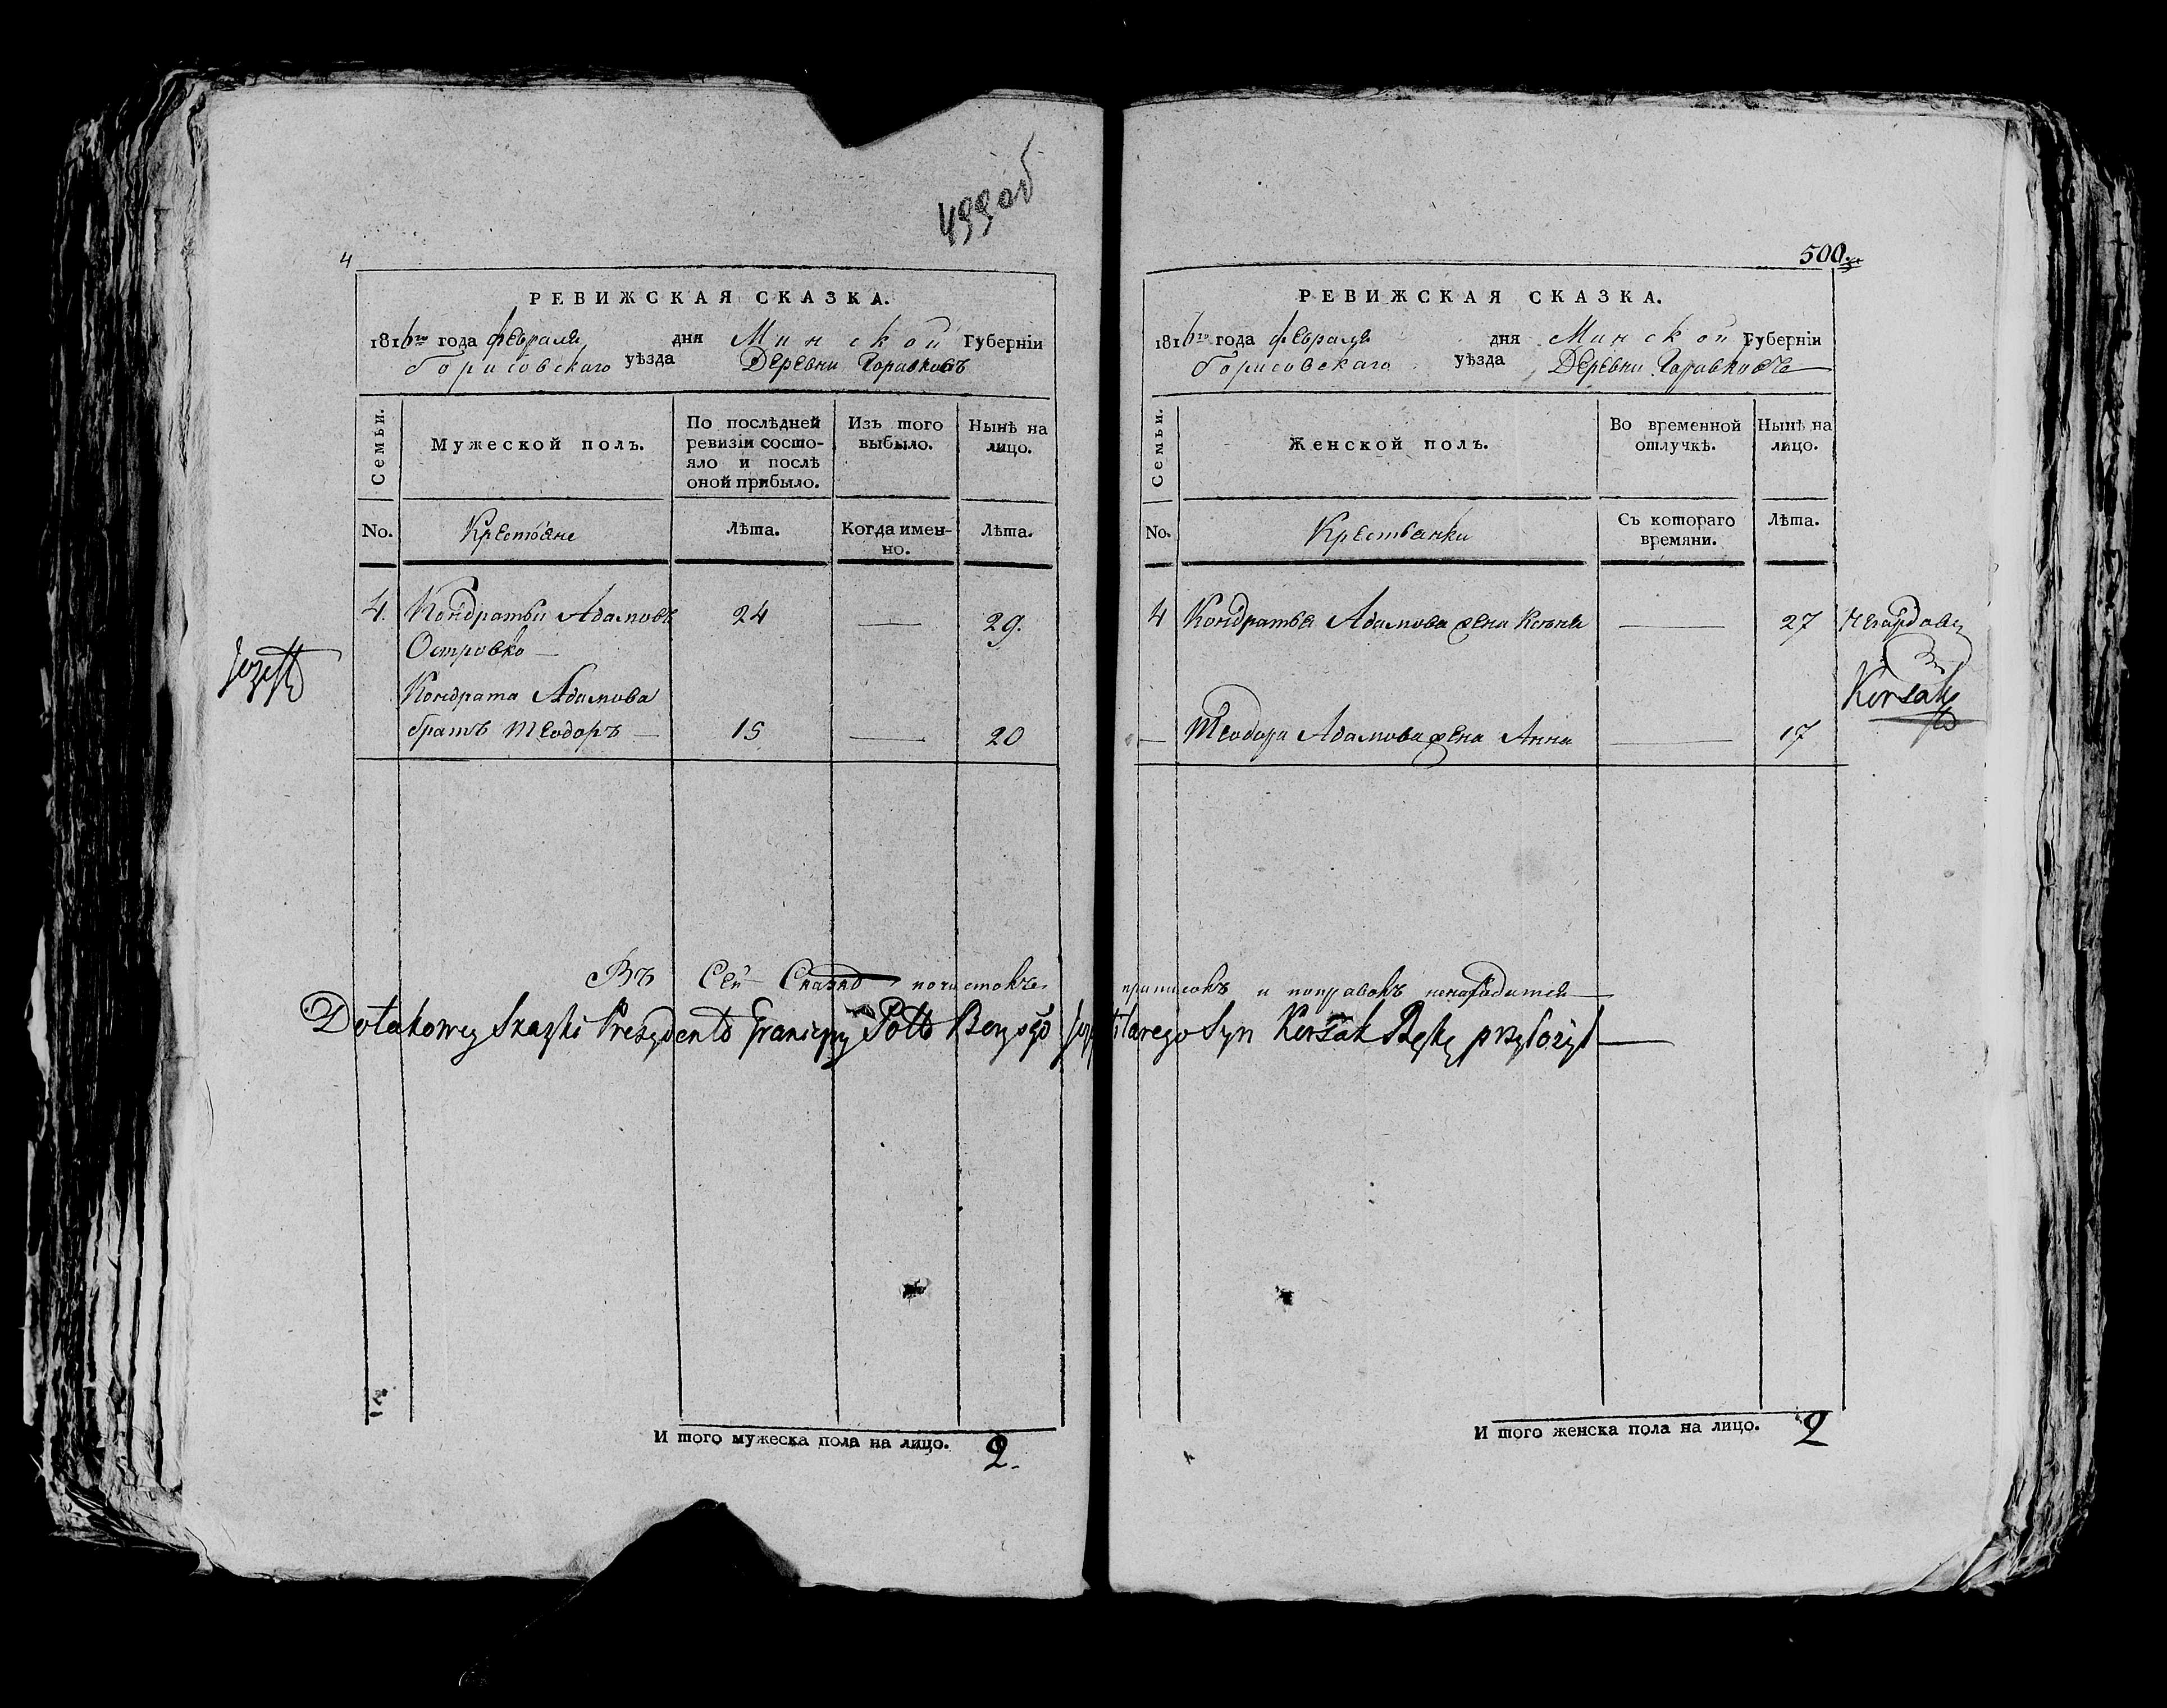 499 об
4
РЕВИЖСКАЯ СКАЗКА.
1816го года февраля дня Минской Губерніи
Борисовскаго уѣзда Деревни
Семьи.
Мужеской полъ.
По послѣдней ревизіи состо-
яло и послѣ оной прибыло.
Изъ того выбыло.
Нынѣ на лицо.
No.
Крестьяне
Лѣта.
Когда имен-
но.
Лѣта.
4. Кондратій Адамовъ 24 — 29.
Островко —
Józeff
Кондрата Адамова
братъ Теодоръ — 15 — 20
Въ Сей Сказкѣ почистокъ
И того мужеска пола на лицо. 2.
500.
РЕВИЖСКАЯ СКАЗКА.
1816го года февраля дня Минской Губерніи
Борисовскаго уѣзда Деревни
Семьи.
Женской полъ.
Во временной отлучкѣ.
Нынѣ на лицо.
No.
Крестьянки
Съ котораго времяни.
Лѣта.
4 Кондратья Адамова жена Ксенія — 27
Korsak
— Теодора Адамова жена Анна — 17
приписокъ и поправокъ ненаходится —
Do takowey Skazki Prezydent Franciszek syn Korsak Rękę przyłożył —
И того женска пола на лицо. 2